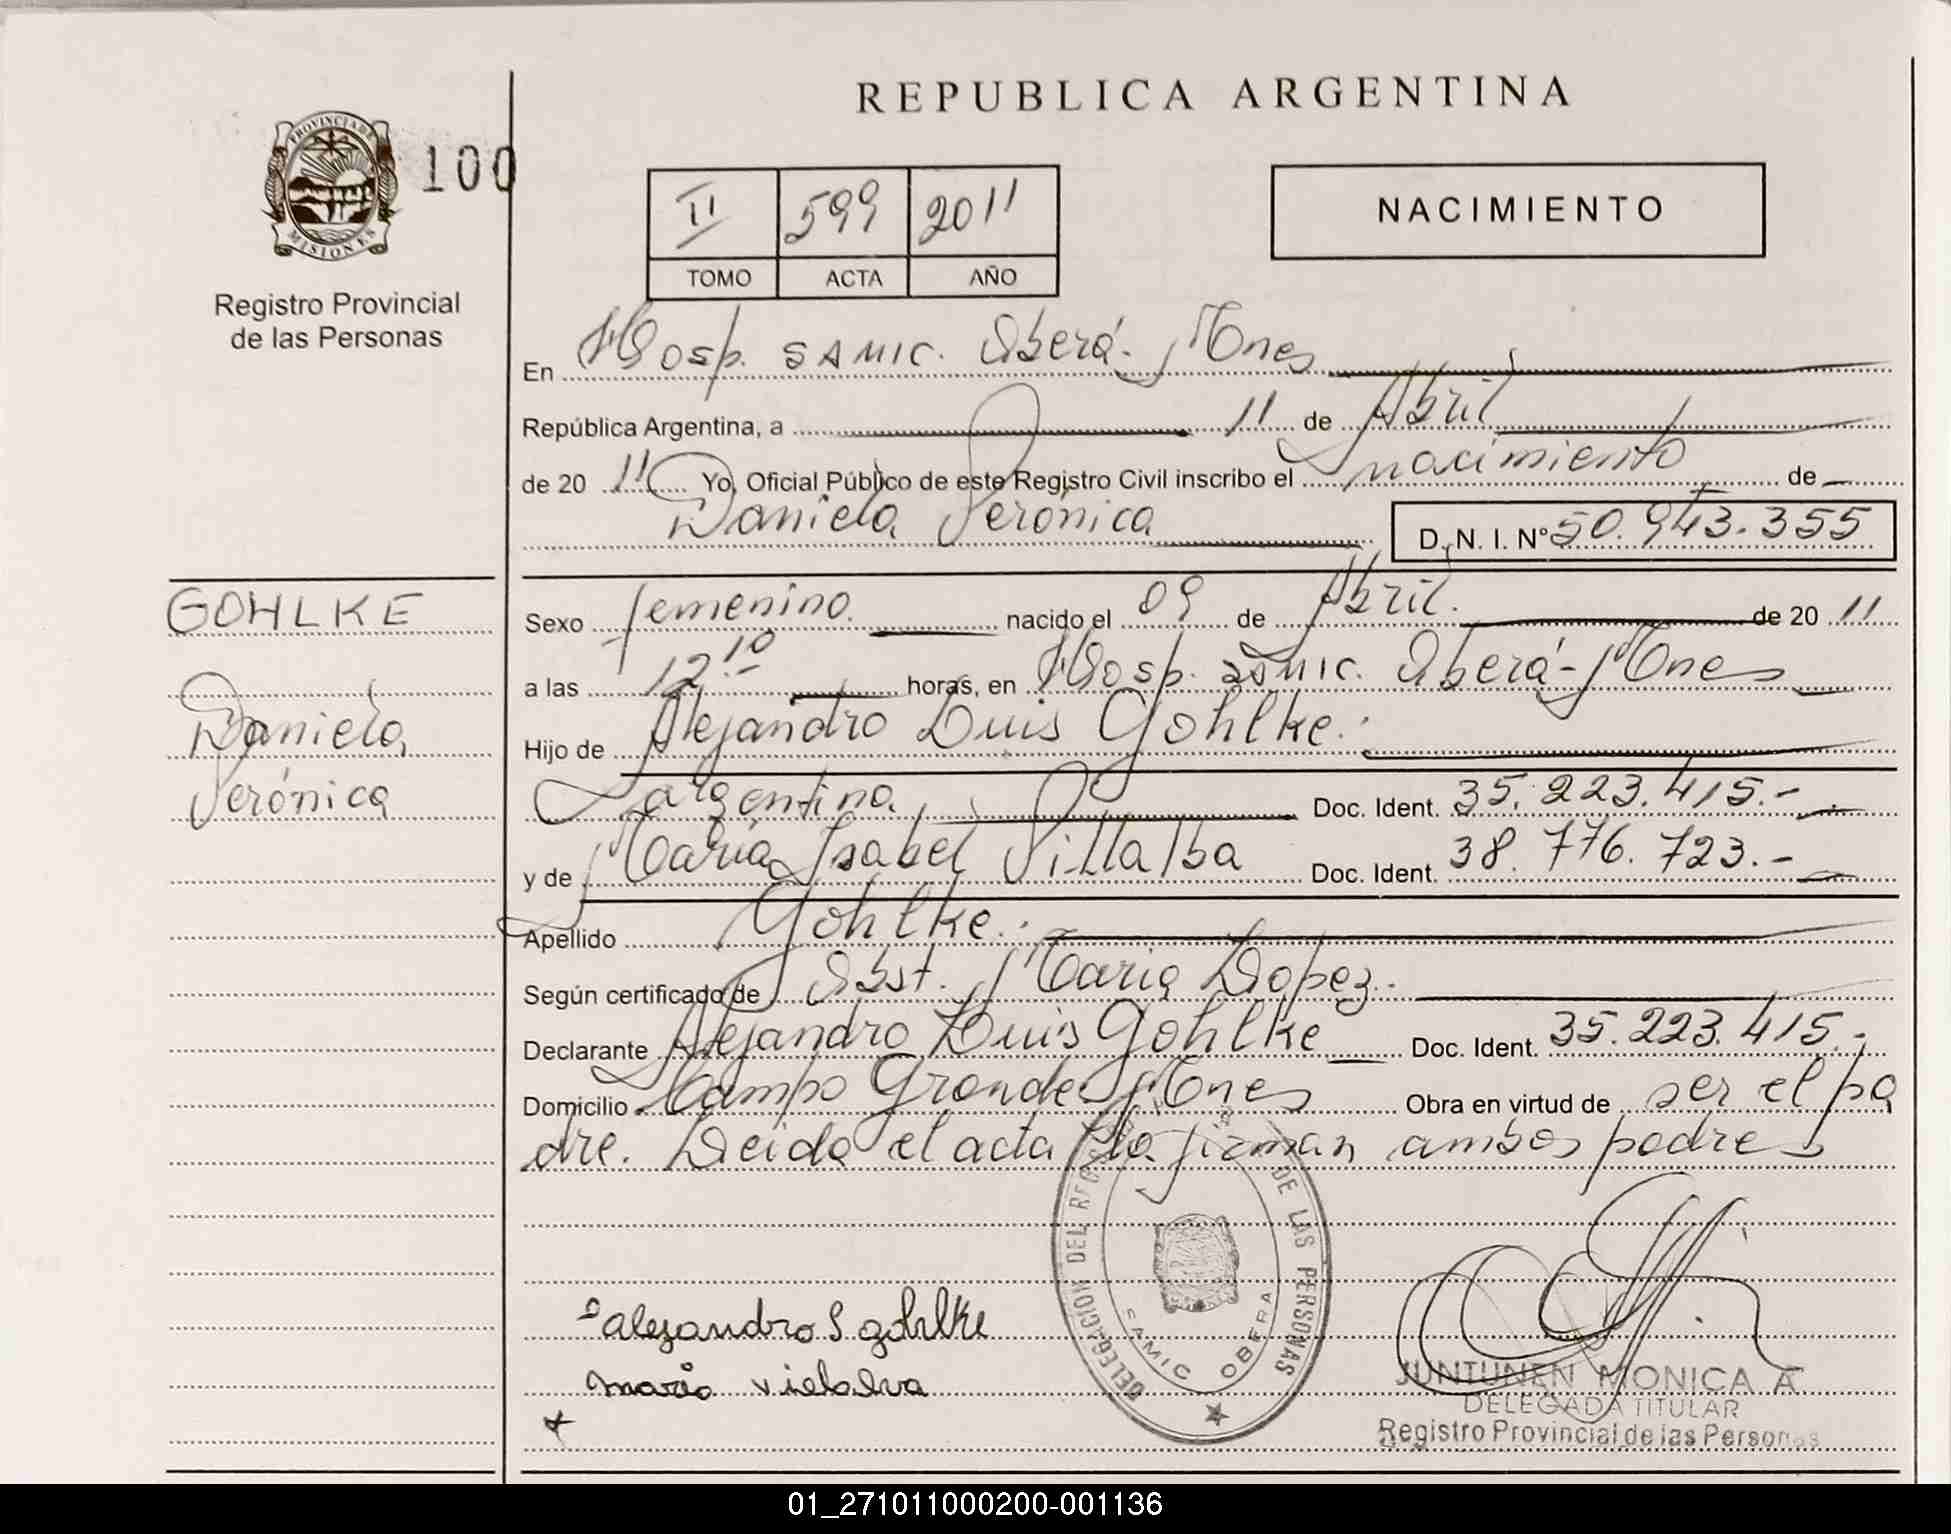 REPUBLICA ARGENTINA
PROVINCIA DE
MISIONES
100
II 599 2011
TOMO ACTA AÑO
NACIMIENTO
Registro Provincial
de las Personas
En Hosp. SAMIC. Oberá - Mnes
República Argentina, a 11 de Abril
de 20 11 Yo, Oficial Público de este Registro Civil inscribo el nacimiento de
Daniela Verónica D. N. I. N° 50.943.355
GOHLKE
Daniela
Verónica
Sexo femenino. nacido el 09 de Abril. de 20 11
a las 12 10 horas, en Hosp. SAMIC. Oberá - Mnes
Hijo de Alejandro Luis Gohlke.
argentina Doc. Ident. 35.223.415.-
y de María Isabel Villalba Doc. Ident. 38.776.723.-
Apellido Gohlke.
Según certificado de Obst. Maria Lopez.
Declarante Alejandro Luis Gohlke Doc. Ident. 35.223.415.-
Domicilio Campo Grande Mnes Obra en virtud de ser el pa
dre. Leida el acta la firman ambos padres
DELEGACION DEL DE LAS PERSONAS
SAMIC OBERA
alejandro L gohlke
maria vielalva
JUNTUNEN MONICA A
DELEGADA TITULAR
Registro Provincial de las Personas
01_271011000200-001136